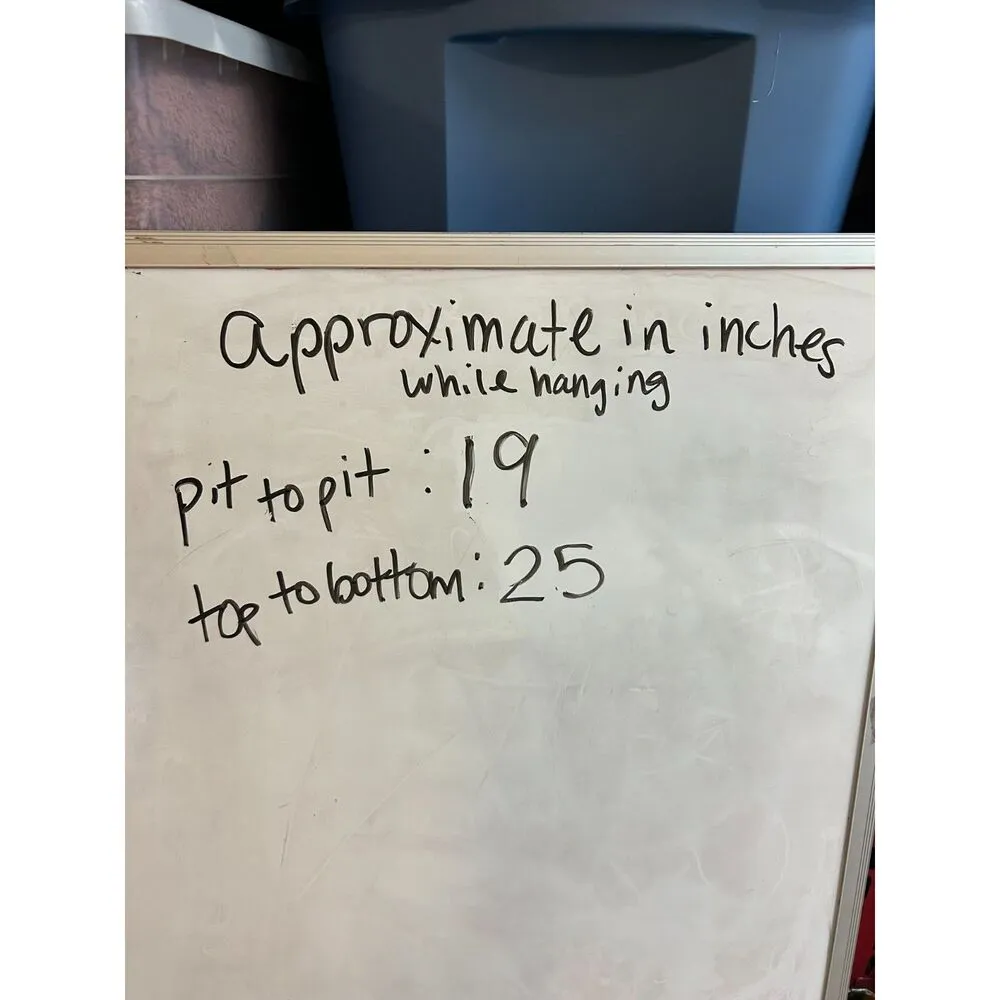 approximate in inches
while hanging
pit to pit : 19
top to bottom : 25